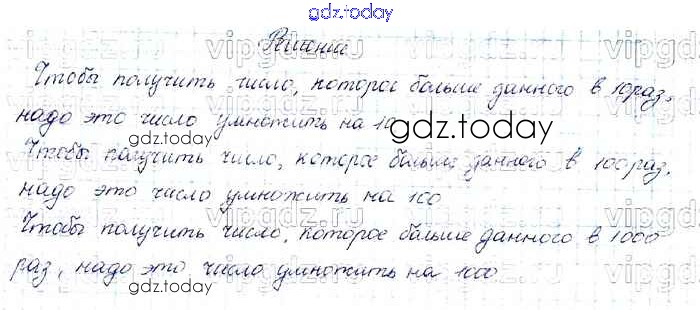 gdz.today
Решение
Чтобы получить число, которое больше данного в 10 раз,
надо это число умножить на 10
gdz.today
Чтобы получить число, которое больше данного в 100 раз,
надо это число умножить на 100
Чтобы получить число, которое больше данного в 1000
раз, надо это число умножить на 1000
gdz.today